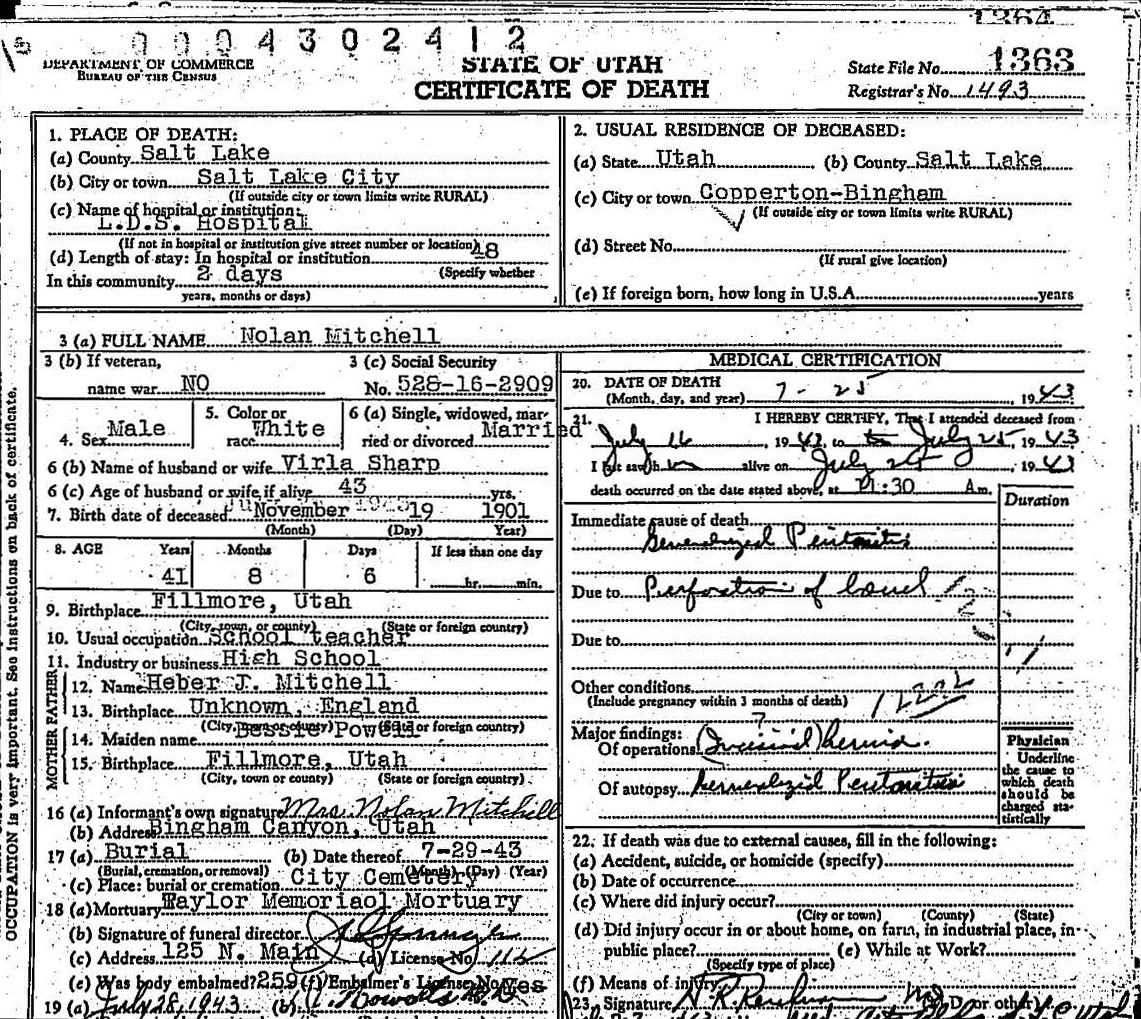 1364
0004302412
DEPARTMENT OF COMMERCE
BUREAU OF THE CENSUS
STATE OF UTAH
CERTIFICATE OF DEATH
State File No. 1363
Registrar's No. 1493
1. PLACE OF DEATH:
(a) County Salt Lake
(b) City or town Salt Lake City
(If outside city or town limits write RURAL)
(c) Name of hospital or institution:
L.D.S. Hospital
(If not in hospital or institution give street number or location)
(d) Length of stay: In hospital or institution 48
(Specify whether
In this community 2 days
years, months or days)
2. USUAL RESIDENCE OF DECEASED:
(a) State Utah (b) County Salt Lake
(c) City or town Copperton-Bingham
(If outside city or town limits write RURAL)
(d) Street No.
(If rural give location)
(e) If foreign born, how long in U.S.A. years
3 (a) FULL NAME Nolan Mitchell
3 (b) If veteran,
name war NO
3 (c) Social Security
No. 528-16-2909
4. Sex Male
5. Color or
race White
6 (a) Single, widowed, mar-
ried or divorced Married
6 (b) Name of husband or wife Virla Sharp
6 (c) Age of husband or wife if alive 43 yrs.
7. Birth date of deceased November 19 1901
(Month) (Day) Year)
8. AGE Years Months Days If less than one day
41 8 6 hr. min.
9. Birthplace Fillmore, Utah
(City, town, or county) (State or foreign country)
10. Usual occupation School teacher
11. Industry or business High School
FATHER
12. Name Heber J. Mitchell
13. Birthplace Unknown, England
(City, town or county) (State or foreign country)
MOTHER
14. Maiden name Bessie Powell
15. Birthplace Fillmore, Utah
(City, town or county) (State or foreign country)
16 (a) Informant's own signature Mrs. Nolan Mitchell
(b) Address Bingham Canyon, Utah
17 (a) Burial (b) Date thereof 7-29-43
(Burial, cremation, or removal) (Month) (Day) (Year)
(c) Place: burial or cremation City Cemetery
18 (a) Mortuary Taylor Memoriaol Mortuary
(b) Signature of funeral director
(c) Address 125 N. Main (d) License No. 116
(e) Was body embalmed? 259 (f) Embalmer's License No. Yes
19 (a) July 28, 1943 (b)
OCCUPATION is very important. See instructions on back of certificate.
MEDICAL CERTIFICATION
20. DATE OF DEATH
(Month, day, and year) 7 - 25 1943
21. I HEREBY CERTIFY, That I attended deceased from
July 16, 1943, to July 25, 1943
I last saw h alive on July 25, 1943
death occurred on the date stated above, at 11:30 A.m.
Duration
Immediate cause of death
Generalized Peritonitis
Due to Perforation of bowel
Due to
Other conditions
(Include pregnancy within 3 months of death)
Major findings:
Of operations (Incisional)? hernia.
Of autopsy Generalized Peritonitis
Physician
Underline
the cause to
which death
should be
charged sta-
tistically
22. If death was due to external causes, fill in the following:
(a) Accident, suicide, or homicide (specify)
(b) Date of occurrence
(c) Where did injury occur?
(City or town) (County) (State)
(d) Did injury occur in or about home, on farm, in industrial place, in
public place? (e) While at Work?
(Specify type of place)
(f) Means of injury
23. Signature M. D. or other